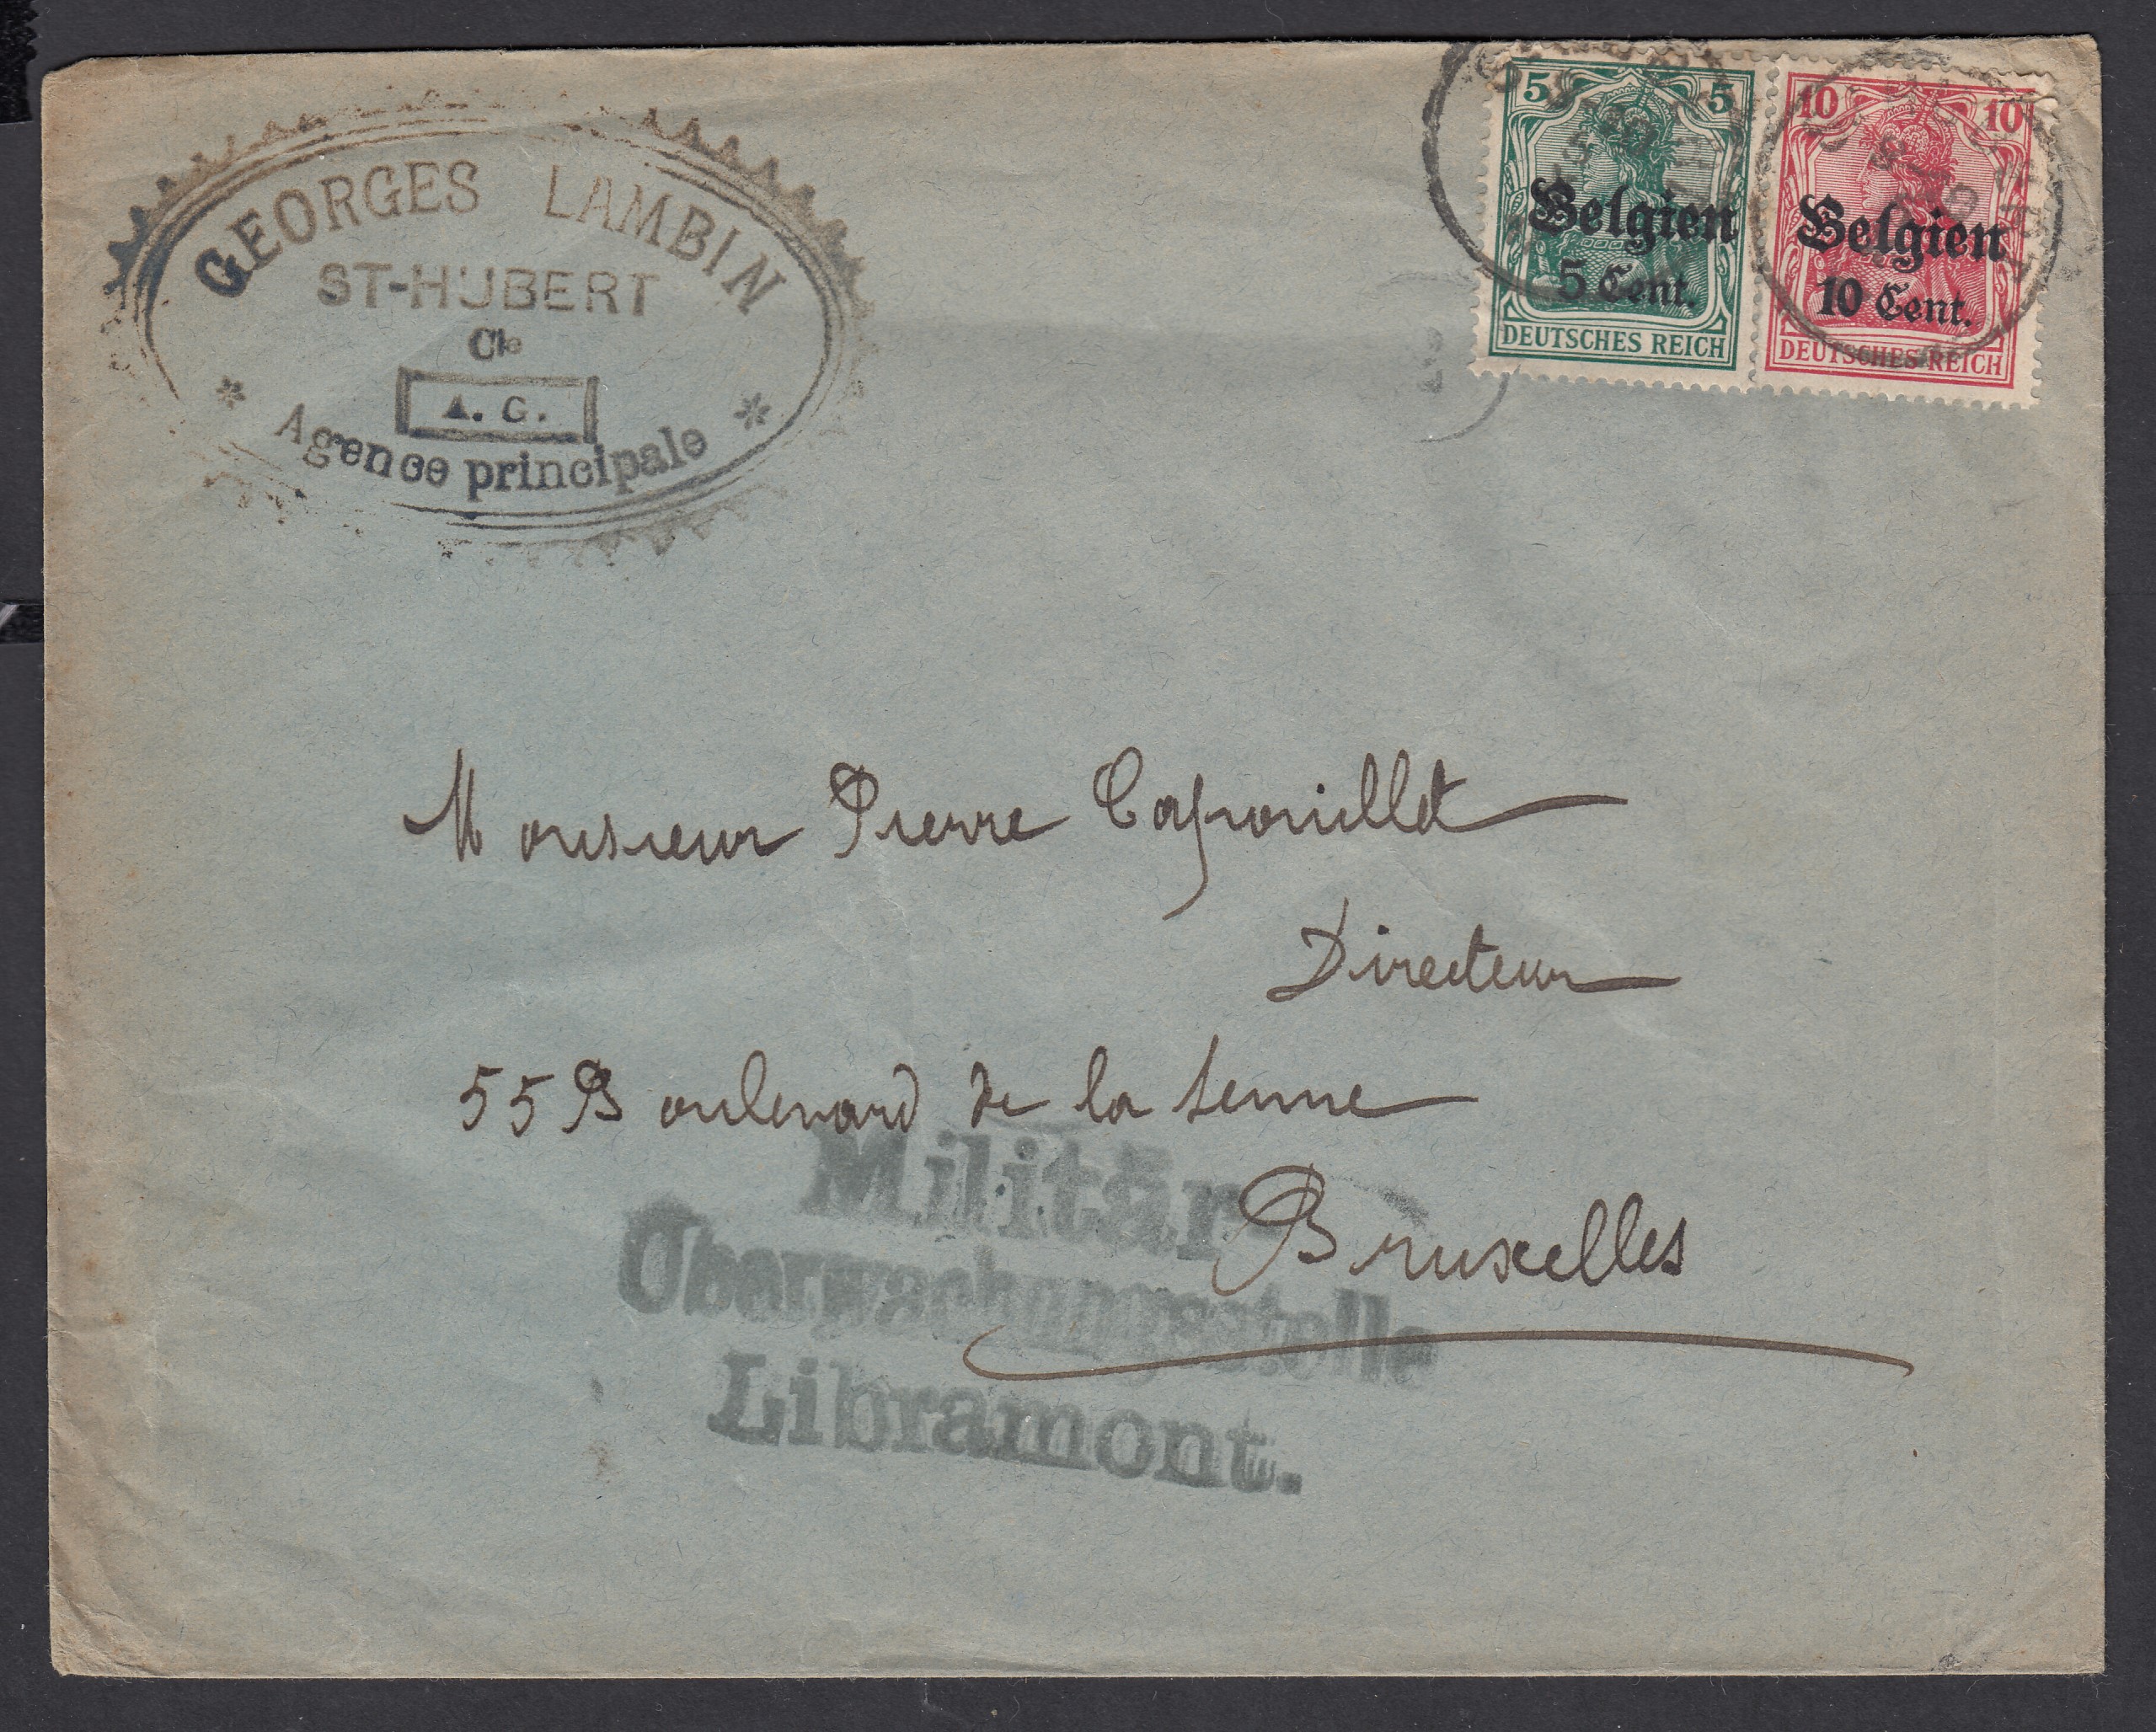 GEORGES LAMBIN
ST-HUBERT
Cie
A. G.
* Agence principale *
5 5
Belgien
5 Cent.
DEUTSCHES REICH
10 10
Belgien
10 Cent.
DEUTSCHES REICH
Monsieur Pierre Capouillet
Directeur
55 Boulevard de la Senne
Bruxelles
Militär-
Überwachungsstelle
Libramont.